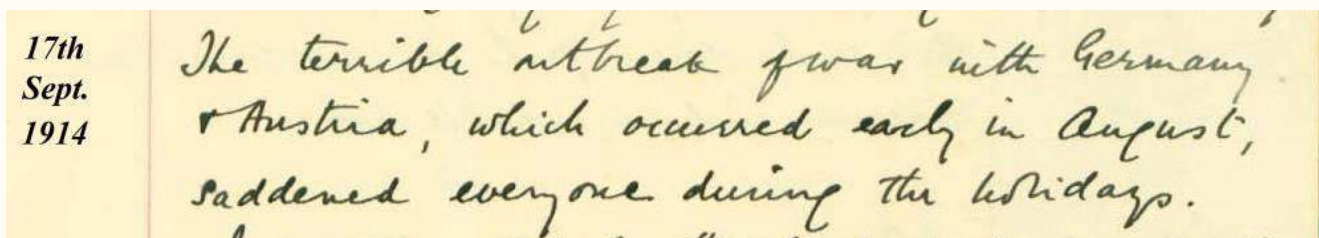 17th
Sept.
1914
The terrible outbreak of war with Germany
& Austria, which occurred early in August,
saddened everyone during the holidays.